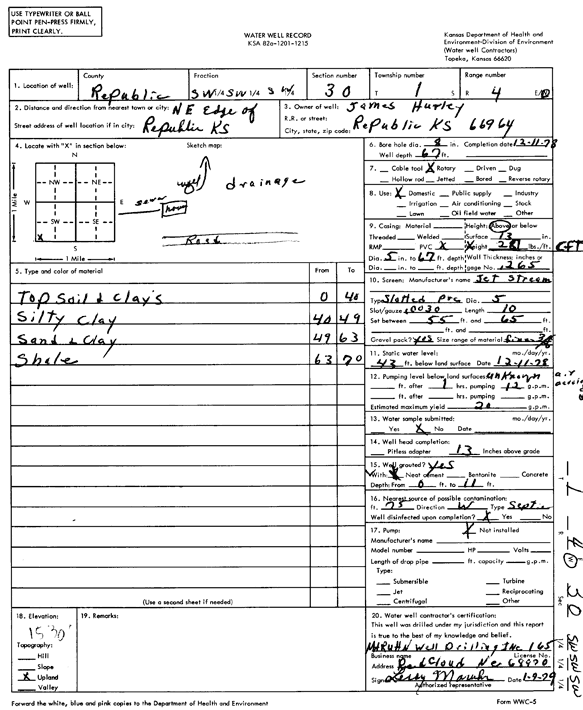 USE TYPEWRITER OR BALL
POINT PEN-PRESS FIRMLY,
PRINT CLEARLY.
WATER WELL RECORD
KSA 82a-1201-1215
Kansas Department of Health and
Environment-Division of Environment
(Water well Contractors)
Topeka, Kansas 66620
1. Location of well: County Republic Fraction SW 1/4 SW 1/4 SW 1/4 Section number 30 Township number T 1 S Range number R 4 E/W
2. Distance and direction from nearest town or city: NE Edge of
Street address of well location if in city: Republic KS
3. Owner of well: James Hurley
R.R. or street:
City, state, zip code: Republic KS 66964
4. Locate with "X" in section below:
Sketch map:
N
NW NE
W E
SW SE
X
S
1 Mile
1 Mile
well
drainage
sewer
house
Road
6. Bore hole dia. 8 in. Completion date 12-11-78
Well depth 67 ft.
7. Cable tool X Rotary Driven Dug
Hollow rod Jetted Bored Reverse rotary
8. Use: X Domestic Public supply Industry
Irrigation Air conditioning Stock
Lawn Oil field water Other
9. Casing: Material Height: Above or below
Threaded Welded Surface 13 in.
RMP PVC X Weight lbs./ft.
Dia. 5 in. to 67 ft. depth Wall Thickness: inches or
Dia. in. to ft. depth gage No. .265
5. Type and color of material From To
Top Soil & Clay's 0 40
Silty Clay 40 49
Sand & Clay 49 63
Shale 63 70
(Use a second sheet if needed)
10. Screen: Manufacturer's name Jet Stream
Type Slotted PVC Dia. 5
Slot/gauze .0030 Length 10
Set between 55 ft. and 65 ft.
ft. and ft.
Gravel pack? yes Size range of material
11. Static water level: mo./day/yr.
43 ft. below land surface Date 12-11-78
12. Pumping level below land surfaces: unknown
ft. after 1 hrs. pumping 12 g.p.m.
ft. after hrs. pumping g.p.m.
Estimated maximum yield 20 g.p.m.
13. Water sample submitted: mo./day/yr.
Yes X No Date
14. Well head completion:
Pitless adapter 13 Inches above grade
15. Well grouted? yes
With: X Neat cement Bentonite Concrete
Depth: From 0 ft. to 11 ft.
16. Nearest source of possible contamination:
ft. 75 Direction W Type Septic
Well disinfected upon completion? X Yes No
17. Pump: X Not installed
Manufacturer's name
Model number HP Volts
Length of drop pipe ft. capacity g.p.m.
Type:
Submersible Turbine
Jet Reciprocating
Centrifugal Other
18. Elevation:
1530
Topography:
Hill
Slope
X Upland
Valley
19. Remarks:
20. Water well contractor's certification:
This well was drilled under my jurisdiction and this report
is true to the best of my knowledge and belief.
Well Drilling Inc 165
Business name License No.
Address Red Cloud Ne 68970
Signed Date 1-9-79
Authorized representative
T 1 R 4W Sec 30 SW SW SW
1/4 1/4 1/4
Forward the white, blue and pink copies to the Department of Health and Environment
Form WWC-5